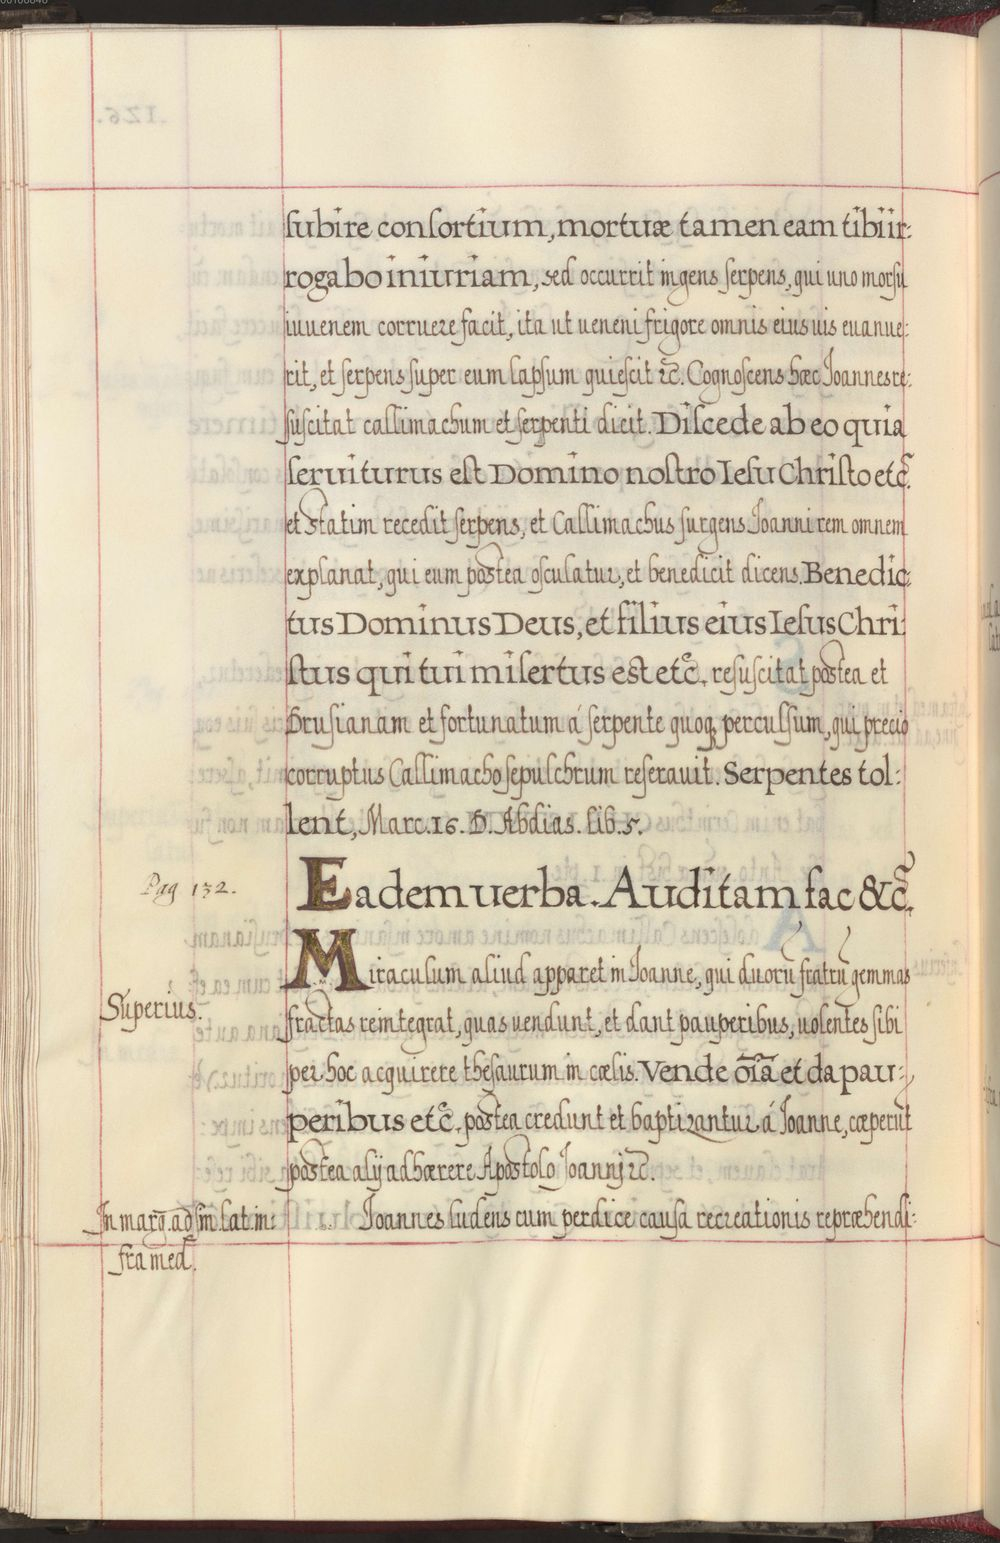 subire consortium, mortuæ tamen eam tibi ir:
rogabo iniuriam, sed occurrit ingens serpens, qui uno morsu
iuuenem corruere facit, ita ut ueneni frigore omnis eius uis euanue:
rit, et serpens super eum lapsum quiescit &c̃. Cognoscens hæc Joannes re:
suscitat callimachum et serpenti dicit. Discede ab eo quia
seruiturus est Domino nostro Iesu Christo etc̃.
et statim recedit serpens, et Callimachus surgens Joanni rem omnem
explanat, qui eum postea osculatur, et benedicit dicens. Benedic:
tus Dominus Deus, et filius eius Iesus Chri:
stus qui tui misertus est etc̃. resuscitat postea et
Drusianam et fortunatum á serpente quoq; percussum, qui precio
corruptus Callimacho sepulchrum reserauit. Serpentes tol:
lent, Marc. 16. D. Abdias. lib. 5.
Pag 132.
Eadem uerba. Auditam fac &c̃.
Miraculum aliud apparet in Joanne, qui duorũ fratrũ gemmas
Superius.
fractas reintegrat, quas uendunt, et dant pauperibus, uolentes sibi
per hoc acquirere thesaurum in cælis. Vende oĩa et da pau:
peribus etc̃. postea credunt et baptizantur á Joanne, cæperũt
postea alij adhærere Apostolo Joannj &c̃.
In marg. ad sin. lat. in:
fra med.
Joannes ludens cum perdice causa recreationis repræhendi: